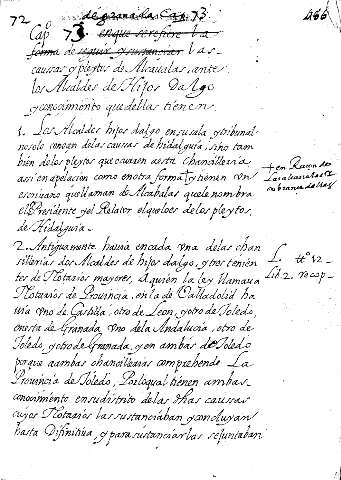 72
de granada Cap. 73.
466
Capº 73. en que se refiere la
forma de seguir y sustanciar las
caussas y pleytos de Alcavalas, ante
los Alcaldes de Hijos Dalgo
y conocimiento que dellas tienen.
1. Los Alcaldes hijos dalgo en su sala y tribunal
no solo conocen de las caussas de hidalguia, sino tam
bien de los pleytos que ocurren a esta Chancilleria
assi en apelacion como en otra forma † y tienen un
† en Razon de
las alcavalas et
cobranza dellas
escrivano que llaman de Alcabalas que le nombra
el Presidente y el Relator el qual es de los pleytos,
de Hidalguia.
2. Antiguamente havia en cada vna de las chan
sillerias dos Alcaldes de Hijos dalgo, y tres tenien
L. tt 12
tes de Notarios mayores, a quien la ley llamava
Lib 2. recop
Notarios de Provincia, en la de Valladolid ha
uia vno de Castilla, otro de Leon, y otro de Toledo,
en esta de Granada vno de la Andalucia, otro de
Toledo, y otro de Granada, y en ambas de Toledo
porque a ambas chancillerias comprehende La
Provincia de Toledo, Por lo qual tienen ambas
conocimiento en su distrito de las dhas caussas
cuyos Notarios las sustanciaban y concluyan
hasta Difinitiva, y para sustanciarlas se juntaban